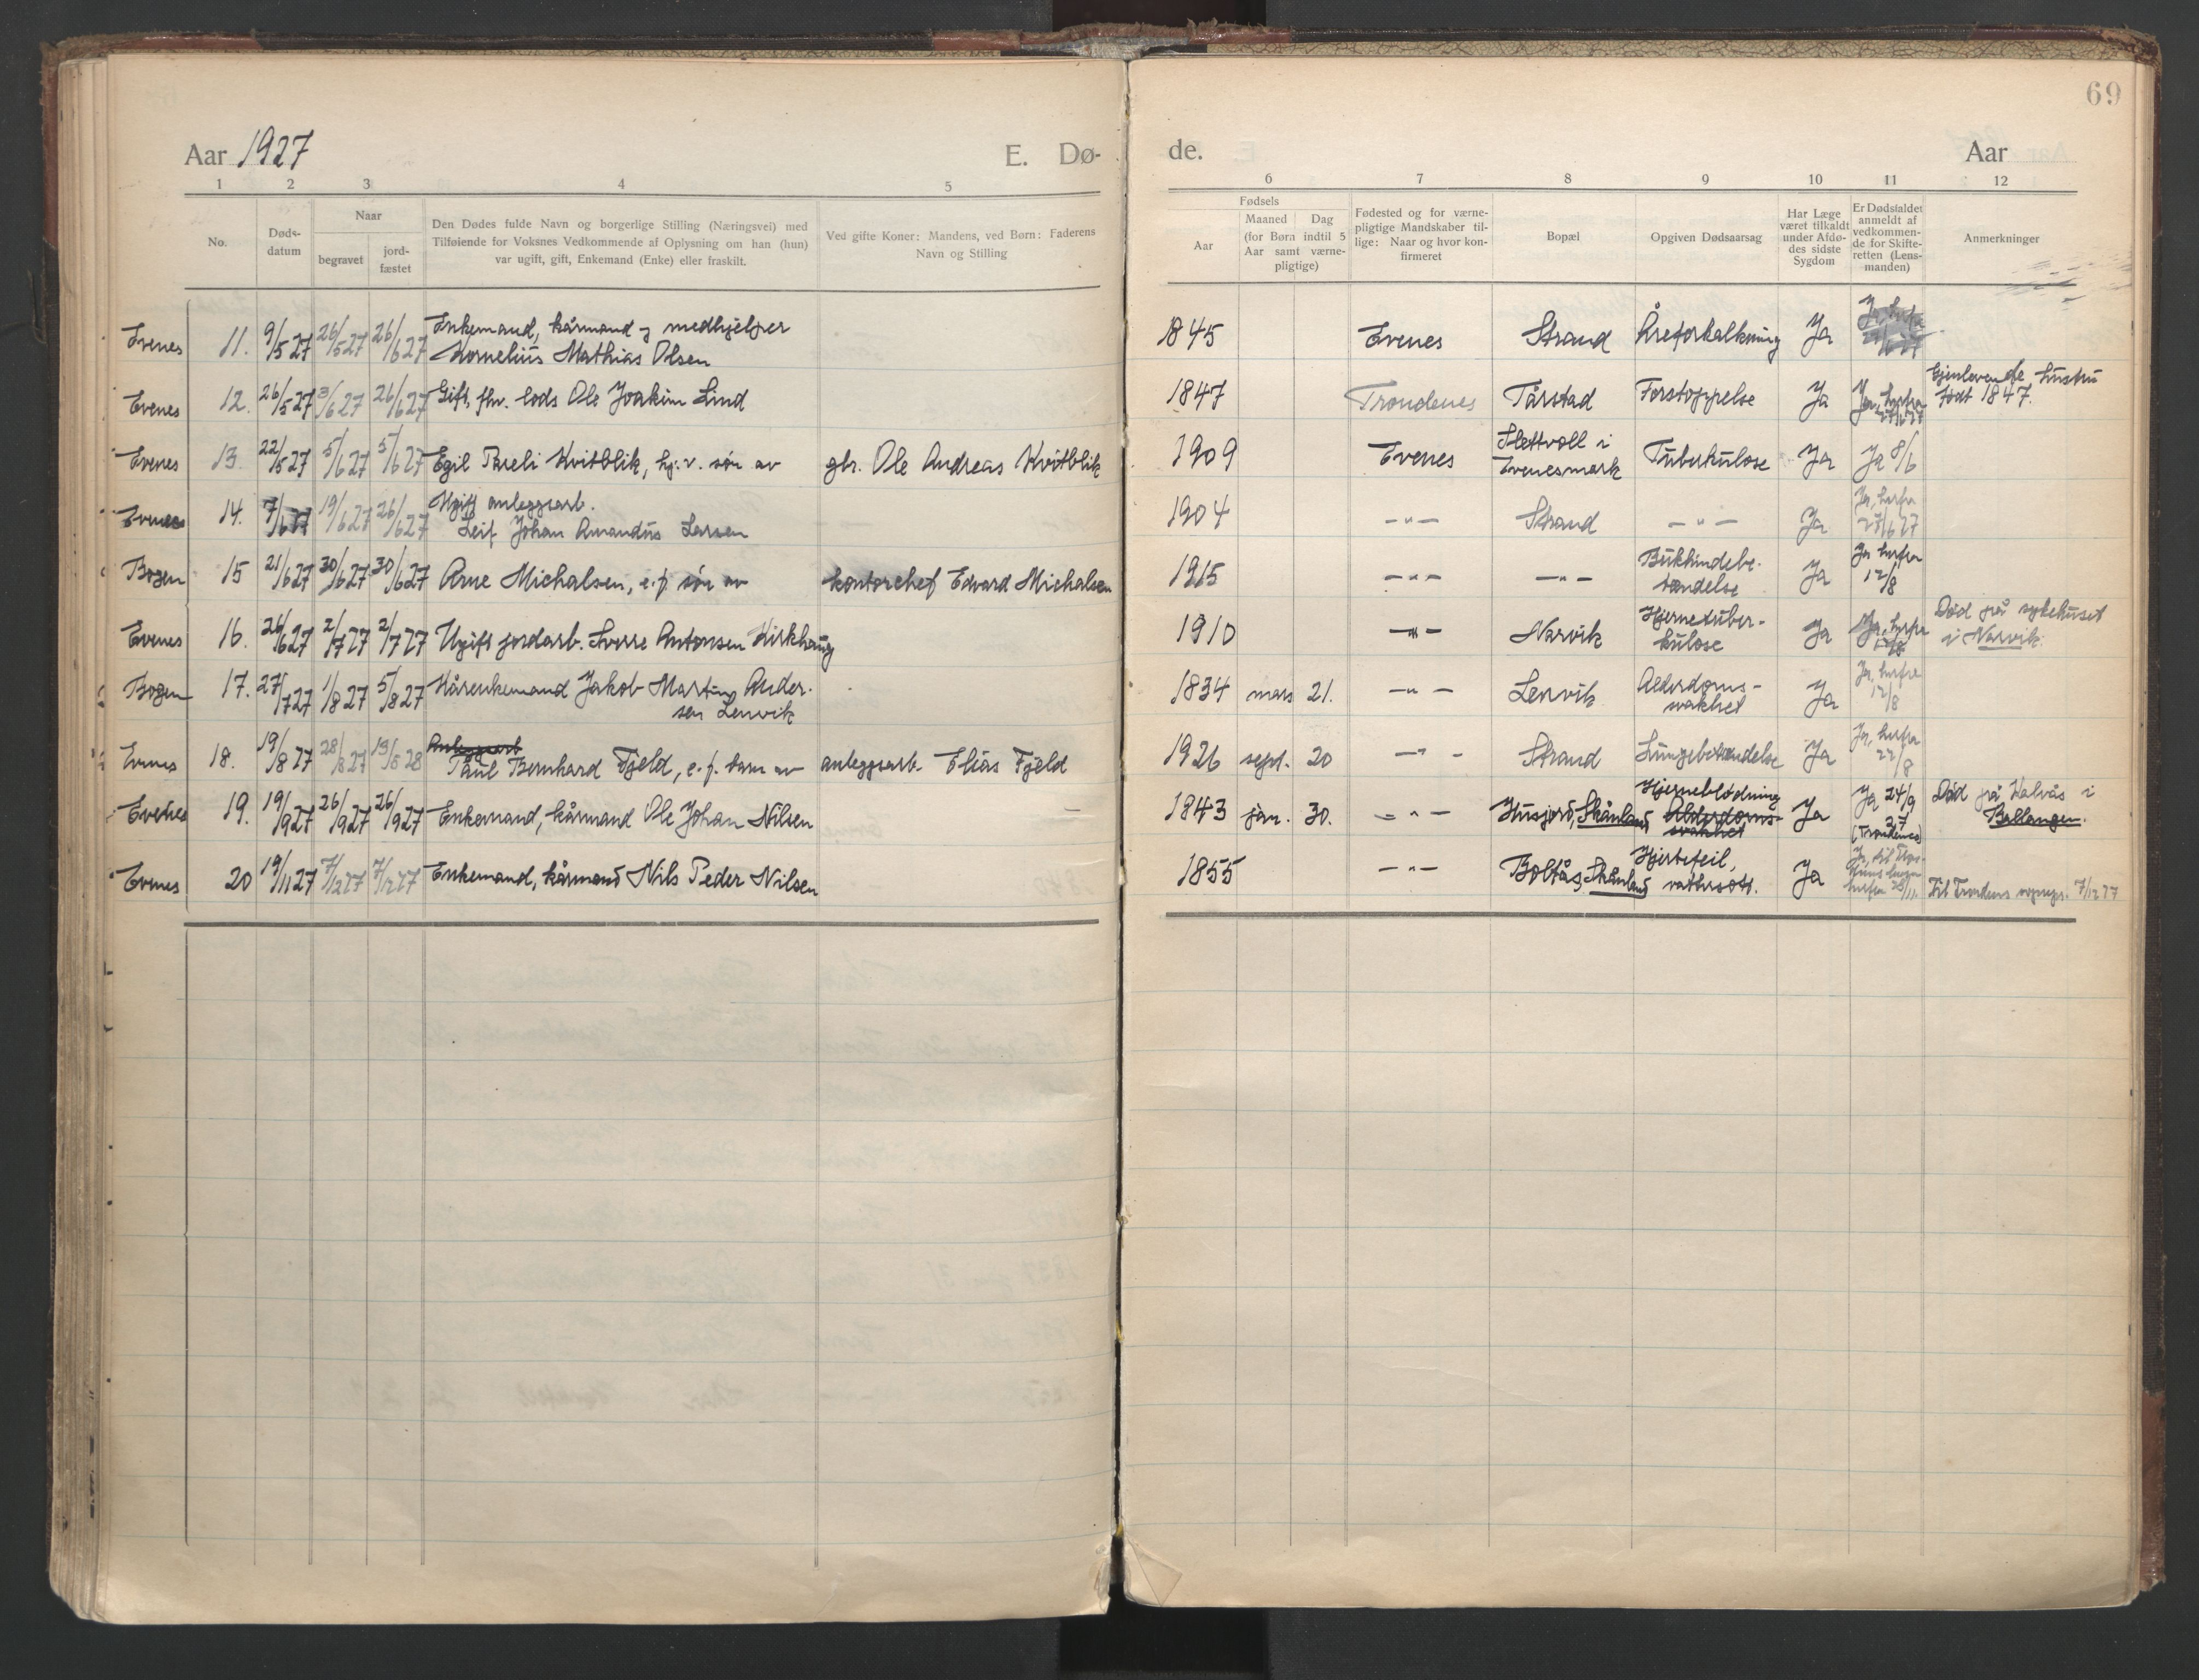 69
Aar 1927 E. Dø- de. Aar
1 2 3 4 5 6 7 8 9 10 11 12
No.
Døds-
datum
Naar
begravet
jord-
fæstet
Den Dødes fulde Navn og borgerlige Stilling (Næringsvei) med
Tilføiende for Voksnes Vedkommende af Oplysning om han (hun)
var ugift, gift, Enkemand (Enke) eller fraskilt.
Ved gifte Koner: Mandens, ved Børn: Faderens
Navn og Stilling
Fødsels
Aar
Maaned Dag
(for Børn indtil 5
Aar samt værne-
pligtige)
Fødested og for værne-
pligtige Mandskaber til-
lige: Naar og hvor kon-
firmeret
Bopæl
Opgiven Dødsaarsag
Har Læge
været tilkaldt
under Afdø-
des sidste
Sygdom
Er Dødsfaldet
anmeldt af
vedkommen-
de for Skifte-
retten (Lens-
manden)
Anmerkninger
Evenes 11. 9/5 27 26/5 27 26/6 27 Enkemand, kårmand og medhjelper
Kornelius Mathias Olsen
1845 Evenes Strand Åreforkalkning Ja
Evenes 12. 26/5 27 3/6 27 26/6 27 Gift, fhv. lods Ole Joakim Lind
1847 Trondenes Tårstad Forstoppelse Ja Ja, herfra 27/6 27
Gjenlevende hustru
født 1847.
Evenes 13. 22/5 27 5/6 27 5/6 27 Egil Pareli Kvitblik, hj.v. søn av gbr. Ole Andreas Kvitblik
1909 Evenes Slettvoll i
Evenesmark Tuberkulose Ja Ja 8/6
Evenes 14. 7/6 27 19/6 27 26/6 27 Ugift anleggsarb.
Leif Johan Amandus Larsen
1904 -"- Strand -"- Ja Ja, herfra
27/6 27
Bogen 15 21/6 27 30/6 27 30/6 27 Arne Michalsen, e.f. søn av kontorchef Edvard Michalsen
1915 -"- -"- Bukhindebe-
tændelse Ja Ja herfra
12/8
Evenes 16. 26/6 27 2/7 27 2/7 27 Ugift jordarb. Sverre Antonsen Kirkhaug
1910 -"- Narvik Hjernetuber-
kulose Ja Ja, herfra
12/8
Død på sykehuset
i Narvik.
Bogen 17. 27/7 27 1/8 27 5/8 27 Kårenkemand Jakob Martin Ander-
sen Lenvik
1834 mars 21. -"- Lenvik Alderdoms-
svakhet Ja Ja, herfra
12/8
Evenes 18. 19/8 27 28/8 27 13/5 28 Anleggsarb
Paul Bernhard Fjeld, e.f. barn av anleggsarb. Elias Fjeld
1926 sept. 20 -"- Strand Lungebetændelse Ja Ja, herfra
22/8
Evenes 19. 19/9 27 26/9 27 26/9 27 Enkemand, kårmand Ole Johan Nilsen
1843 jan. 30. -"- Husjord, Skånland Hjerneblødning
Alderdoms-
svakhet Ja Ja 24/9
27
(Trondenes)
Død på Kalvås i
Ballangen.
Evenes 20 19/11 27 7/12 27 7/12 27 Enkemand, kårmand Nils Peder Nilsen
1855 -"- Boltås, Skånland Hjertefeil,
vattersott. Ja
herfra 28/11.
Til Trondenes sogнepr. 7/12 27